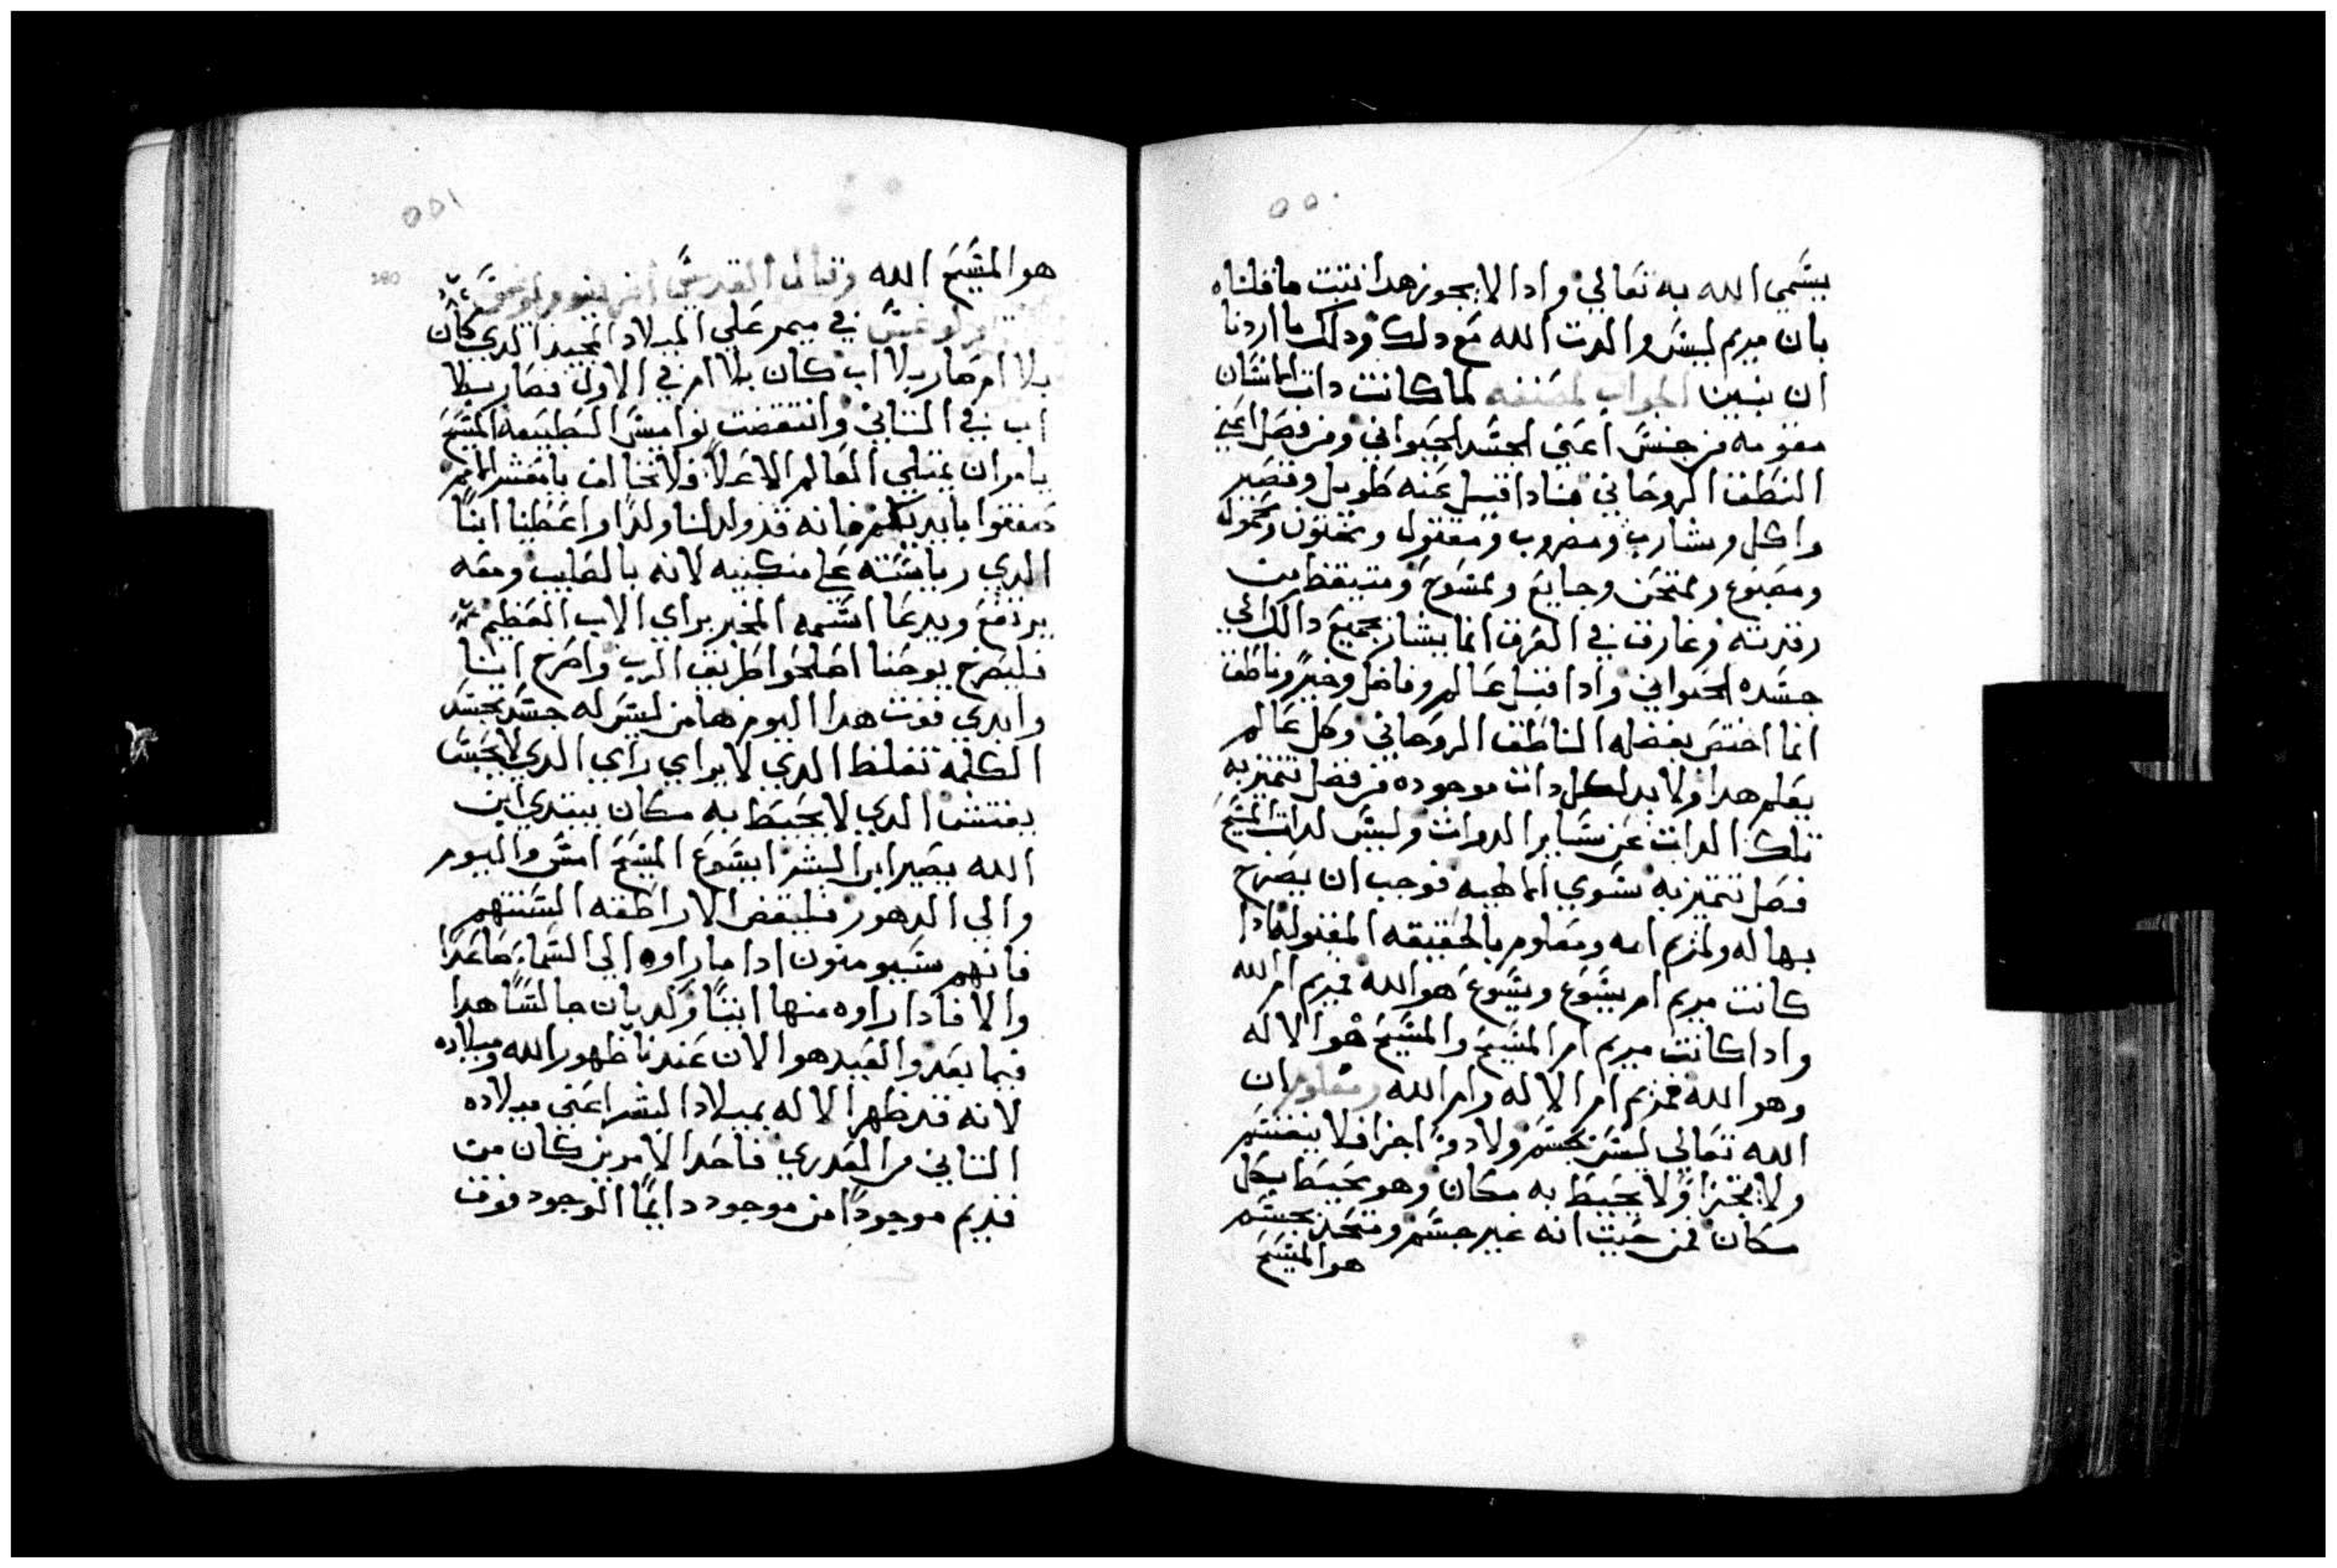 ٥٥٠
يسمي الله به تعالي واذا لا يجوز هدا نتبت ما قلناه
بان مريم ليس والدت الله مع دلك ودلك ما اردنا
ان نبين الجواب لمصنفه لما كانت دات الانسان
مقومه من جنس اعني الجسد الحيواني ومن فصل اعني
النطق الروحاني فادا قيل عنه طويل وقصير
واكل وشارب ومضروب ومقتول ومختون ومحمول
ومصبوغ وممتحن وجايع وممسوح ومتيقظ من
رقدته وغارق في العرق انما يشار بجميع دالك الي
جسده الحيواني وادا قيل عالم وفاضل وخير وناطق
انما اختص بفضله الناطق الروحاني وكل عالم
يعلم هدا ولا بد لكل دات موجوده من فصل تتميز به
تلك الدات عن ساير الدوات وليس لدات المسيح
فصل تتميز به سوي الالهيه فوجب ان يصرح
بها له ولمريم امه ومعلوم بالحقيقه المقبوله ادا
كانت مريم ام يسوع ويسوع هو الله فمريم ام الله
وادا كانت مريم ام المسيح والمسيح هو الاله
وهو الله فمريم ام الاله وام الله ومعلوم ان
الله تعالي ليس بجسم ولا دو اجزا فلا ينقسم
ولا يتجزا ولا يحيط به مكان وهو يحيط بكل
مكان فمن حيت انه غير جسم ومتحد بجسم
هو المسيح
٥٥١
280
هو المسيح الله وقال القديس
في ميمر علي الميلاد المجيد الدي كان
بلا ام صار بلا اب كان بلا ام في الاول فصار بلا
اب في التاني وانتقضت نواميس الطبيعه المسيح
يامر ان يمتلي العالم الاعلا فلا نخالف يا معشر الامم
صفقوا بايديكم فانه قد ولد لنا ولدا واعطينا ابنا
الدي رياسته علي منكبيه لانه بالصليب ومعه
يرتفع ويدعا اسمه المخبر براي الاب العظيم
فليصرخ يوحنا اصلحوا طريق الرب واصرخ انا
وابدي قوت هدا اليوم هامن ليس له جسد تجسد
الكلمه تغلظ الدي لا يراي راي الدي لا يجس
يفتش الدي لا يحيط به مكان يبتدي ابن
الله يصير ابن البشر ايسوع المسيح امس واليوم
والي الدهور فليقض الاراطقه السنتهم
فانهم سيومنون ادا ما راوه الي السما صاعدا
والا فادا راوه منها اتيا وكديان جالسا هدا
فيما بعد والعيد هو الان عندنا ظهور الله وميلاده
لانه قد ظهر الاله بميلاد البشر اعني ميلاده
التاني من العدري فاحد الامرين كان من
قديم موجودا من موجود دايما الوجود فوق